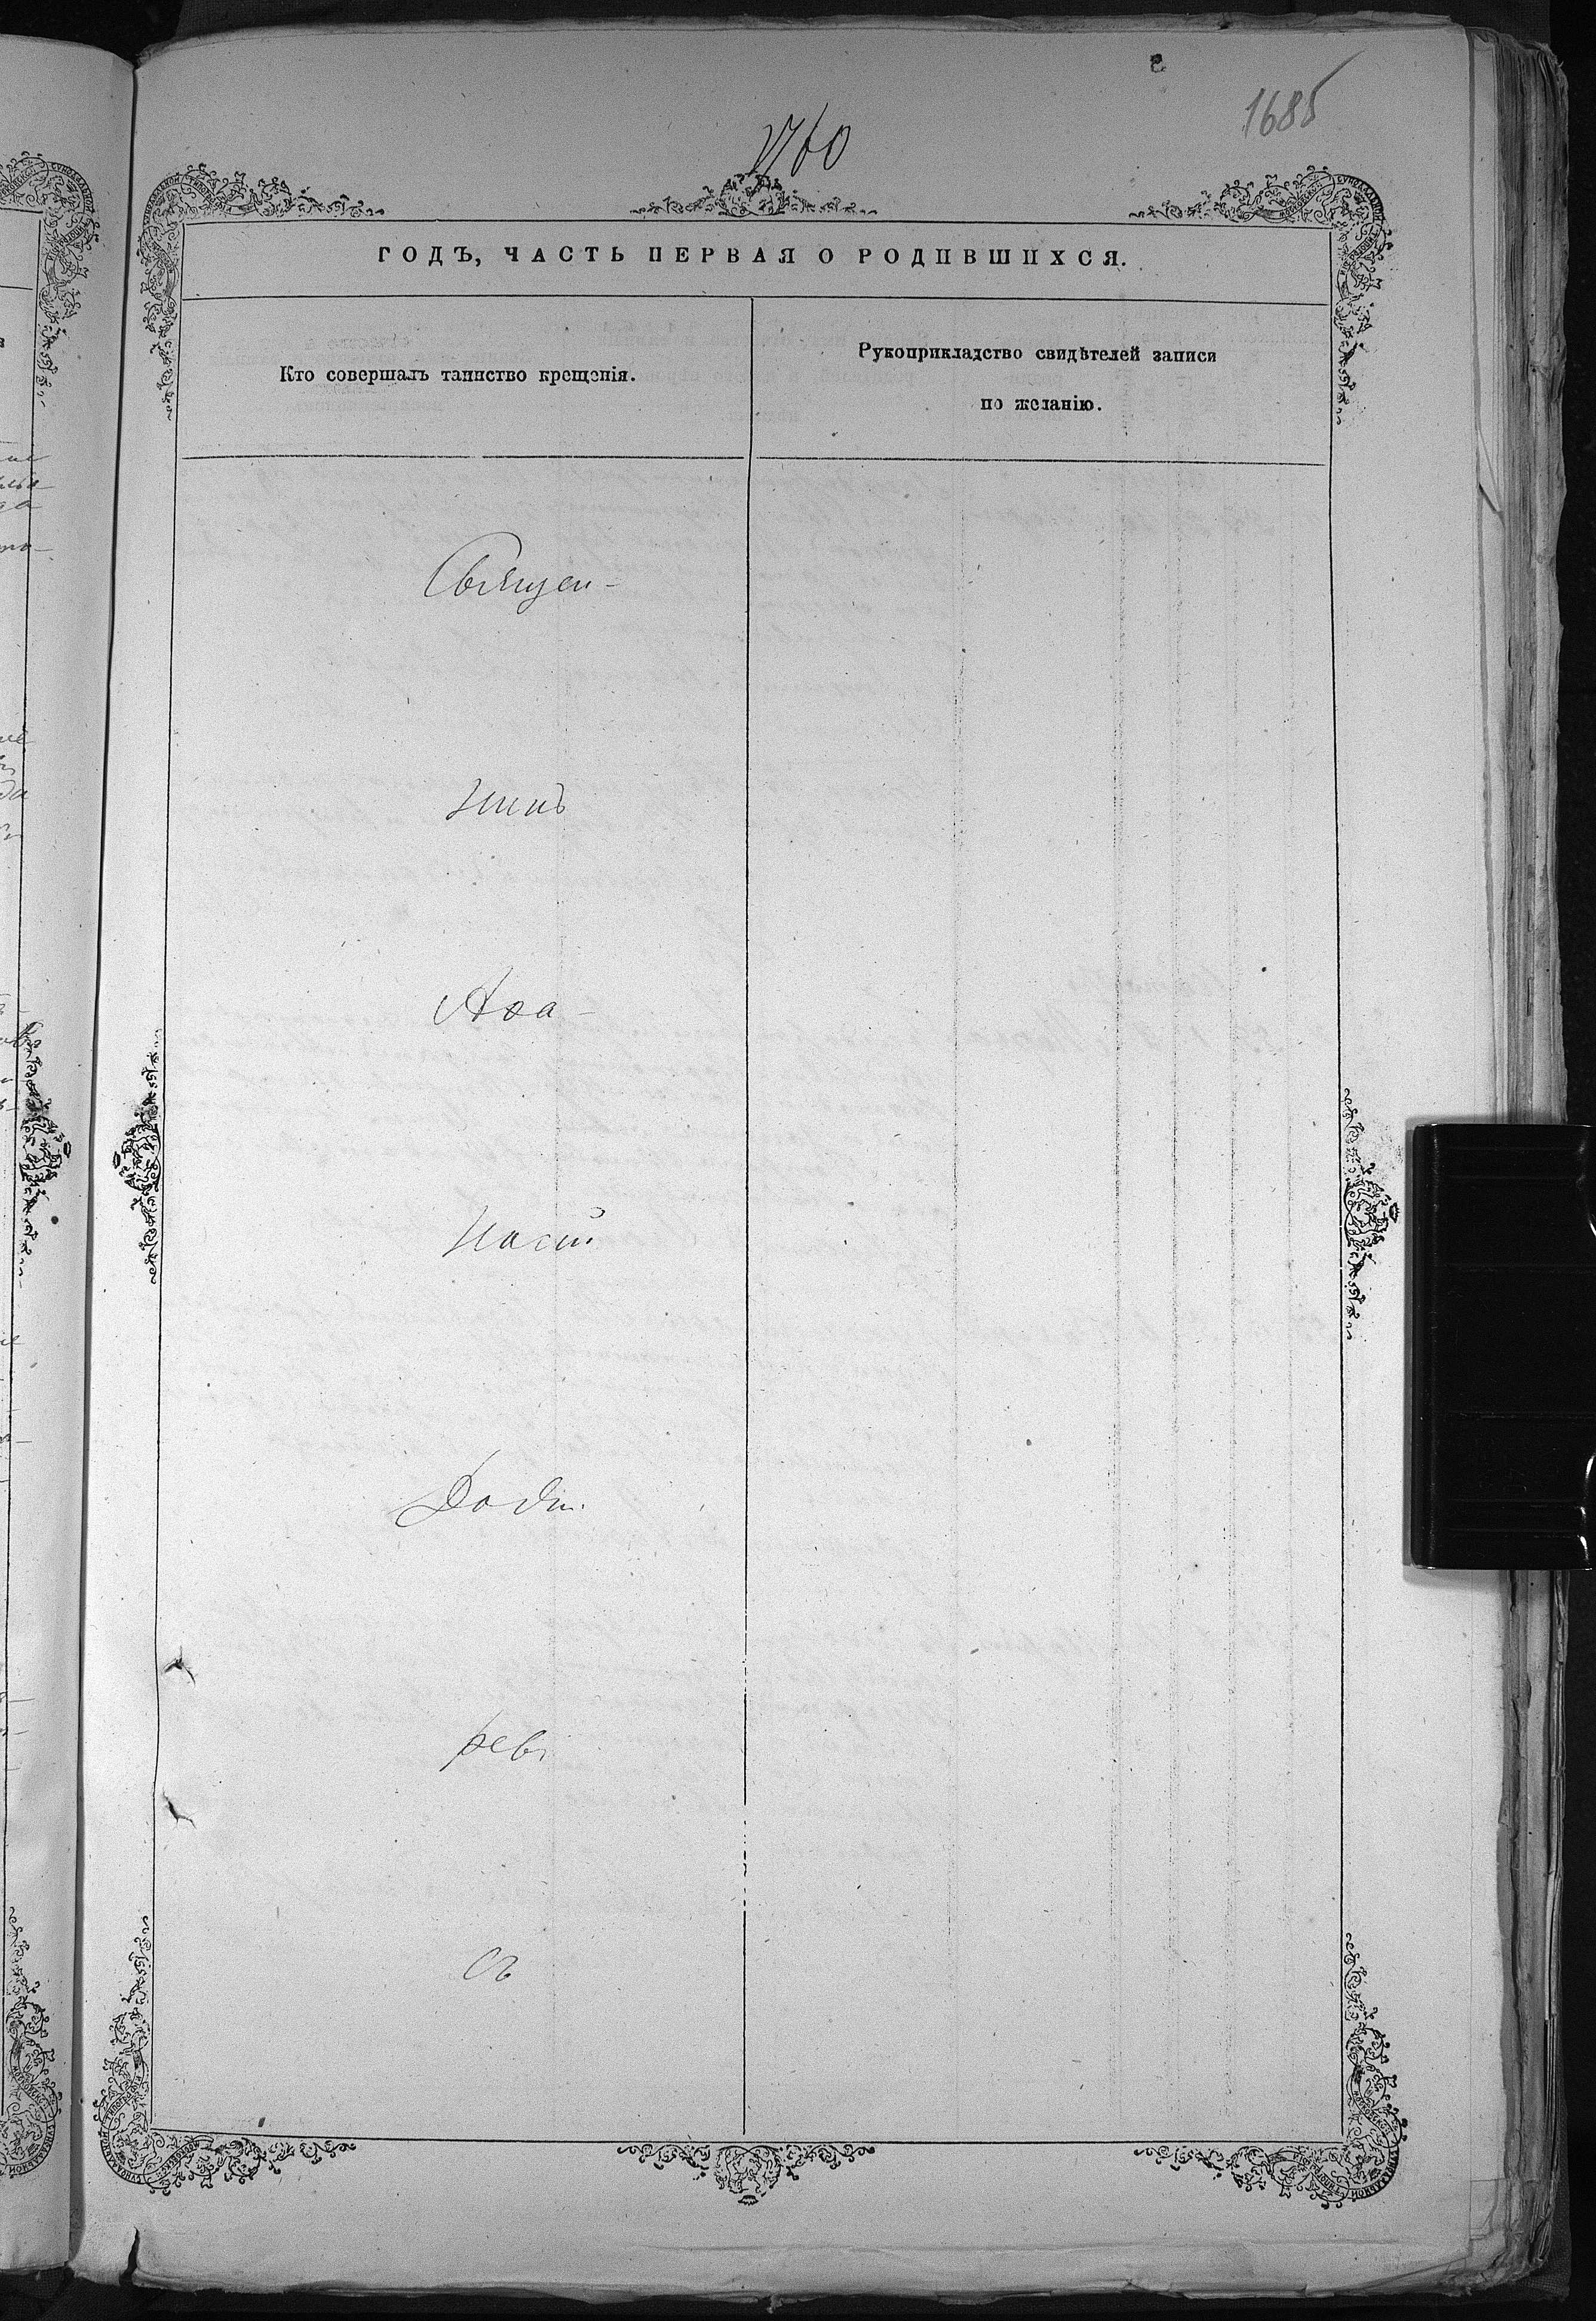 1685
1760
ГОДЪ, ЧАСТЬ ПЕРВАЯ О РОДИВШИХСЯ.
Кто совершалъ таинство крещенія.
Рукоприкладство свидѣтелей записи
по желанію.
Священ-
никъ
Афа-
насій
Доди-
ревъ